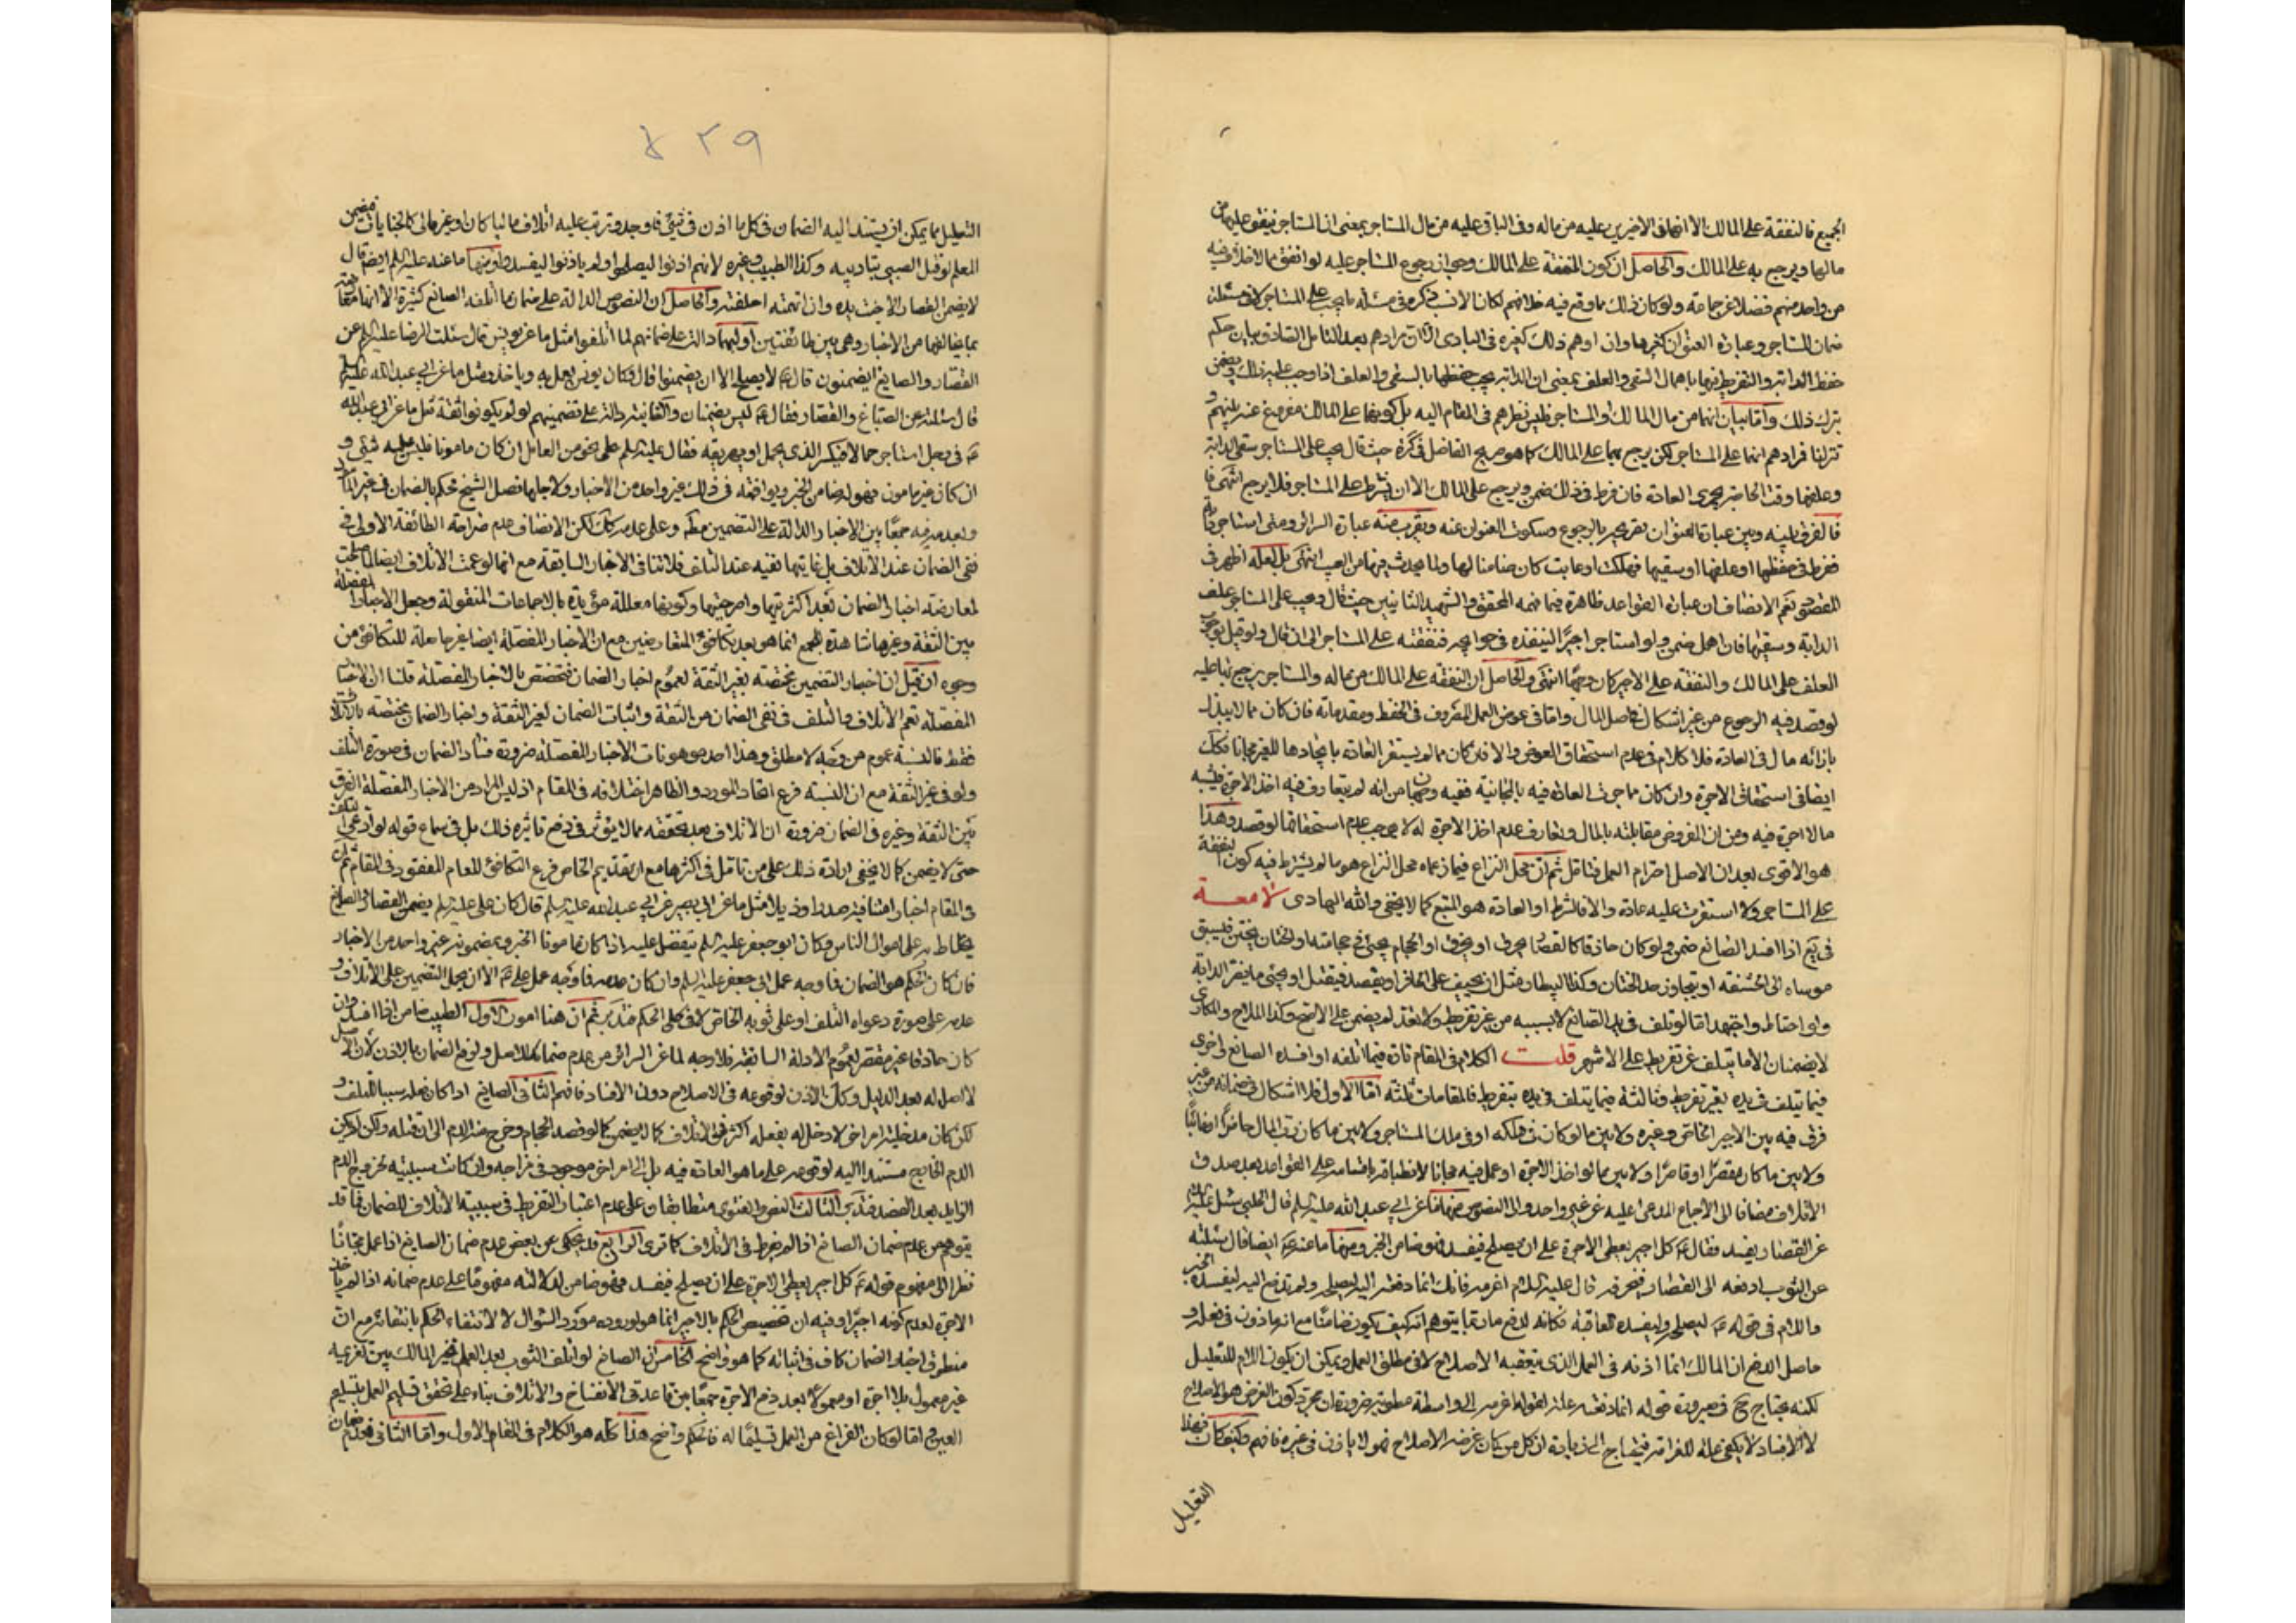 الجميع فالنفقة على المالك الا انفاق الاخيرين عليه من ماله وفى الباقى عليه من مال المستاجر بمعنى ان المستاجر ينفق عليهما من
مالهما ويرجع به على المالك والحاصل ان كون النفقة على المالك وجواز رجوع المستاجر عليه لو انفق مما لا خلاف فيه
من واحد منهم فضلا عن جماعة ولو كان ذلك مما وقع فيه خلافهم لكان الانسب ذكره فى مسئلة ما يجب على المستاجر لا فى مسئلة
ضمان المستاجر وعبارة اكثرها وان اوهم ذلك كغيره فى البادى الا ان مرادهم بعد التامل الصادق بيان حكم
حفظ الدابة والتفريط فيها باهمال السقى والعلف بمعنى ان الدابة يجب حفظها بالسقى والعلف اذا وجب عليه ذلك ويضمن
بترك ذلك واما بيان انهما من مال المالك او المستاجر فليس نظرهم فى المقام اليه بل كونهما على المالك مفروغ عنه بينهم و
تنزلنا فمرادهم انهما على المستاجر لكن يرجع بهما على المالك كما هو صريح الفاضل فى كره حيث قال يجب على المستاجر سقى الدابة
وعلفها وقت الحاضر بمجرى العادة فان فرط فى ذلك ضمن ويرجع على المالك الا ان يشترط على المستاجر فلا يرجع انتهى فا
فالفرق بينه وبين عبارة ان تصريحه بالرجوع وسكوت عنه ويقرب منه عبارة السرائر ومتى استاجر دابة
ففرط فى حفظها او علفها او سقيها فهلكت او عابت كان ضامنا لها ولما يحدث فيها من العيب انتهى بل لعله اظهر فى
نعم الانصاف ان عبارة القواعد ظاهرة فيما فهمه المحقق والشهيد الثانيين حيث قال ويجب على المستاجر علف
الدابة وسقيها فان اهمل ضمن ولو استاجر اجيرا لينفذه فى حوائجه فنفقته على المستاجر الى ان قال ولو قيل بوجوب
العلف على المالك والنفقة على الاجير كان وجها انتهى والحاصل ان النفقة على المالك من ماله والمستاجر يرجع بها عليه
لو قصد فيه الرجوع من غير اشكال فى اصل المال واما فى عوض العمل المصروف فى الحفظ ومقدماته فان كان مما لا يبذل
بازائه مال فى العادة فلا كلام فى عدم استحقاق العوض والا فان كان مما لم يستقر العادة بايجادها للغير مجانا فكك
ايضا فى استحقاق الاجرة وان كان مما جرت العادة فيه بالمجانية ففيه وجهان من انه لم يتعارف فيه اخذ الاجرة فيشبه
مالا اجرة فيه ومن ان المفروض مقابلته بالمال وتعارف عدم اخذ الاجرة له لا يوجب عدم استحقاقها لو قصد وهذا
هو الاقوى بعد ان الاصل احترام العمل فتامل ثم ان محل النزاع فيما زعماه محل النزاع هو ما لم يشترط فيه كون النفقة
على المستاجر ولا استقرت عليه عادة والا فالشرط او العادة هو المتبع كما لا يخفى والله الهادى لامعة
فى يع اذا افسد الصانع ضمن ولو كان حاذقا كالقصار يحرق او يخرق او الحجام يجنى فى حجامته او الختان يختن فيسبق
موساه الى الحشفة او يتجاوز حد الختان وكذا البيطار مثل ان يحيف على الحافر او يفصد فيقتل او يجنى ما يضر الدابة
ولو احتاط واجتهد اما لو تلف فى يد الصانع لا بسببه من غير تفريط ولا تعد لم يضمن على الاصح وكذا الملاح والمكارى
لا يضمنان الا ما يتلف عن تفريط على الاشهر قلت الكلام فى المقام تارة فيما اتلفه او افسده الصانع واخرى
فيما يتلف فى يده بغير تفريط وثالثة فيما يتلف فى يده بتفريط فالمقامات ثلثة اما الاول فلا اشكال فى ضمانه من غير
فرق فيه بين الاجير الخاص وغيره ولا بين ما لو كان فى ملكه او فى ملك المستاجر ولا بين ما كان رب المال حاضرا او غائبا
ولا بين ما كان مقصرا او قاصرا ولا بين ما لو اخذ الاجرة او عمل فيه مجانا لانطباقه باقسامه على القواعد بعد صدق
الاتلاف مضافا الى الاجماع المدعى عليه عن غير واحد والى النصوص منها ما عن ابى عبد الله عليه السلم قال الحلبى سئل عليه السلم
عن القصار يفسد فقال ع كل اجير يعطى الاجرة على ان يصلح فيفسد فهو ضامن الخبر ومنها ما عنه ع ايضا قال سئلته
عن الثوب ادفعه الى القصار فيحرقه قال عليه السلام اغرمه فانك انما دفعته اليه ليصلحه ولم تدفع اليه ليفسده الخبر
واللام فى قوله ع ليصلحه وليفسده للعاقبة فكانه لدفع ما ربما يتوهم انه كيف يكون ضامنا مع انه ماذون فى فعله و
حاصل الدفع ان المالك انما اذنه فى العمل الذى يتعقبه الاصلاح لا فى مطلق العمل ويمكن ان يكون اللام للتعليل
لكنه يحتاج ح فى صيرورة قوله انما دفعته علة لقوله اغرمه الى واسطة مطوية ضرورة ان مجرد كون الغرض هو الاصلاح
لا الافساد لا يكفى علة للغرامة فيحتاج الى زيادة ان كل من كان غرضه الاصلاح فهو لا ياذن فى غيره فافهم وكيف كان فهذا
التعليل
٤٢٩
التعليل مما يمكن ان يستند اليه الضمان فى كل ما اذن فى شئ فاوجد وترتب عليه اتلاف ماليا كان او غير مالى كالجنايات فيضمن
المعلم لو قتل الصبى بتاديبه وكذا الطبيب وغيره لانهم اذنوا ليصلحوا ولم ياذنوا ليفسدوا ومنها ما عنه عليه السلم ايضا قال
لا يضمن القصار الا ما جنت يده وان اتهمته احلفته والحاصل ان النصوص الدالة على ضمان ما اتلفه الصانع كثيرة الا انها معارضة
بما يخالفها من الاخبار وهى بين طائفتين اوليهما دالة على ضمانهم لما اتلفوا مثل ما عن يونس قال سئلت الرضا عليه السلم عن
القصار والصايغ ايضمنون قال ع لا يصلح الا ان يضمنوا قال وكان يونس يعمل به وياخذ ومثل ما عن ابى عبد الله عليه السلم
قال سئلته عن الصباغ والقصار فقال ع ليس يضمنان والثانية دالة على تضمينهم لو لم يكونوا ثقة مثل ما عن ابى عبد الله
ع فى رجل استاجر جمالا فيكسر الذى يحمل او يهريقه فقال عليه السلم على نحو من العامل ان كان مامونا فليس عليه شئ و
ان كان غير مامون فهو له ضامن الخبر ويوافقه فى ذلك غير واحد من الاخبار ولاجلها فصل الشيخ فحكم بالضمان فى غير المامون
وبعدمه فيه جمعا بين الاخبار الدالة على التضمين مطلقا وعلى عدمه كك لكن الانصاف عدم صراحة الطائفة الاولى فى
نفى الضمان عند الاتلاف بل غايتها نفيه عند التلف فلا تنافى الاخبار السابقة مع انها لو عمت الاتلاف ايضا لما صلحت
لمعارضة اخبار الضمان بعد اكثريتها واصرحيتها وكونها معللة مؤيدة بالاجماعات المنقولة وجعل الاخبار المفصلة
بين الثقة وغيرها شاهدة للجمع انما هو بعد تكافؤ المتعارضين مع ان الاخبار المفصلة ايضا غير جاعلة للتكافؤ من
وجوه ان قيل ان اخبار التضمين مختصة بغير الثقة لعموم اخبار الضمان فتخصص بالاخبار المفصلة قلنا ان الاخبار
المفصلة تعم الاتلاف والتلف فى نفى الضمان من الثقة واثبات الضمان لغير الثقة واخبار الضمان مختصة بالاتلاف
فقط فالنسبة عموم من وجه لا مطلق وهذا احد موهونات الاخبار المفصلة ضرورة فساد الضمان فى صورة التلف
ولو فى غير الثقة مع ان النسبة فرع اتحاد المورد والظاهر اختلافه فى المقام اذ ليس المراد من الاخبار المفصلة الفرق
بين الثقة وغيره فى الضمان ضرورة ان الاتلاف بعد تحققه مما لا يؤثر فى دفع تاثيره ذلك بل فى سماع قوله لو ادعى التلف
حتى لا يضمن كما لا يخفى ارادة ذلك على من تامل فى اكثرها مع ان تقديم الخاص فرع التكافؤ للعام المفقود فى المقام ثم ان
فى المقام اخبار متنافية صدرا وذيلا مثل ما عن ابى بصير عن ابى عبد الله عليه السلم قال كان على عليه السلم يضمن القصار والصايغ
يحتاط به على اموال الناس وكان ابو جعفر عليه السلم يتفضل عليه اذا كان مامونا الخبر وبمضمونه غير واحد من الاخبار
فان كان الحكم هو الضمان فما وجه عمل ابى جعفر عليه السلم وان كان عدمه فما وجه عمل على ع الا ان يحمل التضمين على الاتلاف و
عدمه على صورة دعواه التلف او على ثوبه الخاص لا فى كلى الحكم فتدبر ثم ان هنا امور الاول الطبيب ضامن اذا افسد وان
كان حاذقا غير مقصر لعموم الادلة السابقة فلا وجه لما عن السرائر من عدم ضمانه للاصل ولرفع الضمان بالاذن لان الاصل
لا اصل له بعد الدليل وكك الاذن لوقوعه فى الاصلاح دون الافساد فافهم الثانى الصانع اذا كان فعله سببا للتلف و
لكن كان مدخلية امر اخر لا دخل له بفعله اكثر فى الاتلاف كما لا يضمن كما لو فصد الحجام وخرج منه الدم الى ان قتله ولكن لم يكن
الدم الخارج مستندا اليه لوقوعه على ما هو العادة فيه بل الى امر اخر موجود فى مزاجه وان كانت سببية لخروج الدم
الزايد بعد الفصد فتدبر الثالث النص والفتوى متطابقان على عدم اعتبار التفريط فى سببية الاتلاف للضمان فما قد
يتوهم من عدم ضمان الصانع اذا لم يفرط فى الاتلاف كما ترى الرابع قد يحكى عن بعض عدم ضمان الصانع اذا عمل مجانا
نظرا الى مفهوم قوله ع كل اجير يعطى الاجرة على ان يصلح فيفسد فهو ضامن لدلالته مفهوما على عدم ضمانه اذا لم ياخذ
الاجرة لعدم كونه اجيرا وفيه ان تخصيص الحكم بالاجير انما هو لوروده مورد السؤال لا لانتفاء الحكم بانتفائه مع ان
منطوق اخبار الضمان كاف فى اثباته كما هو واضح الخامس ان الصانع لو اتلف الثوب بعد العمل تخير المالك بين تغريمه
غير معمول بلا اجرة او معمولا بعد دفع الاجرة جمعا بين قاعدتى الانفساخ والاتلاف بناء على تحقق تسليم العمل بتسليم
العين اما لو كان الفراغ من العمل تسليما له فالحكم واضح هذا كله هو الكلام فى المقام الاول واما الثانى فعدم ضمان